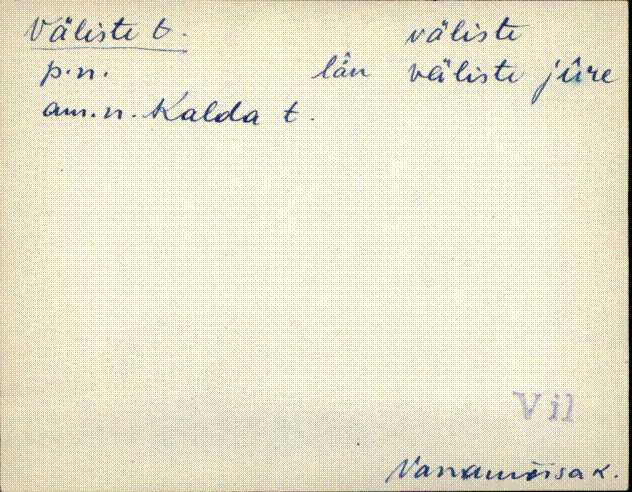 Väliste t. väliste
p.n. lân väliste jûre
am.n. Kalda t.
Vil
Vanamõisa k.